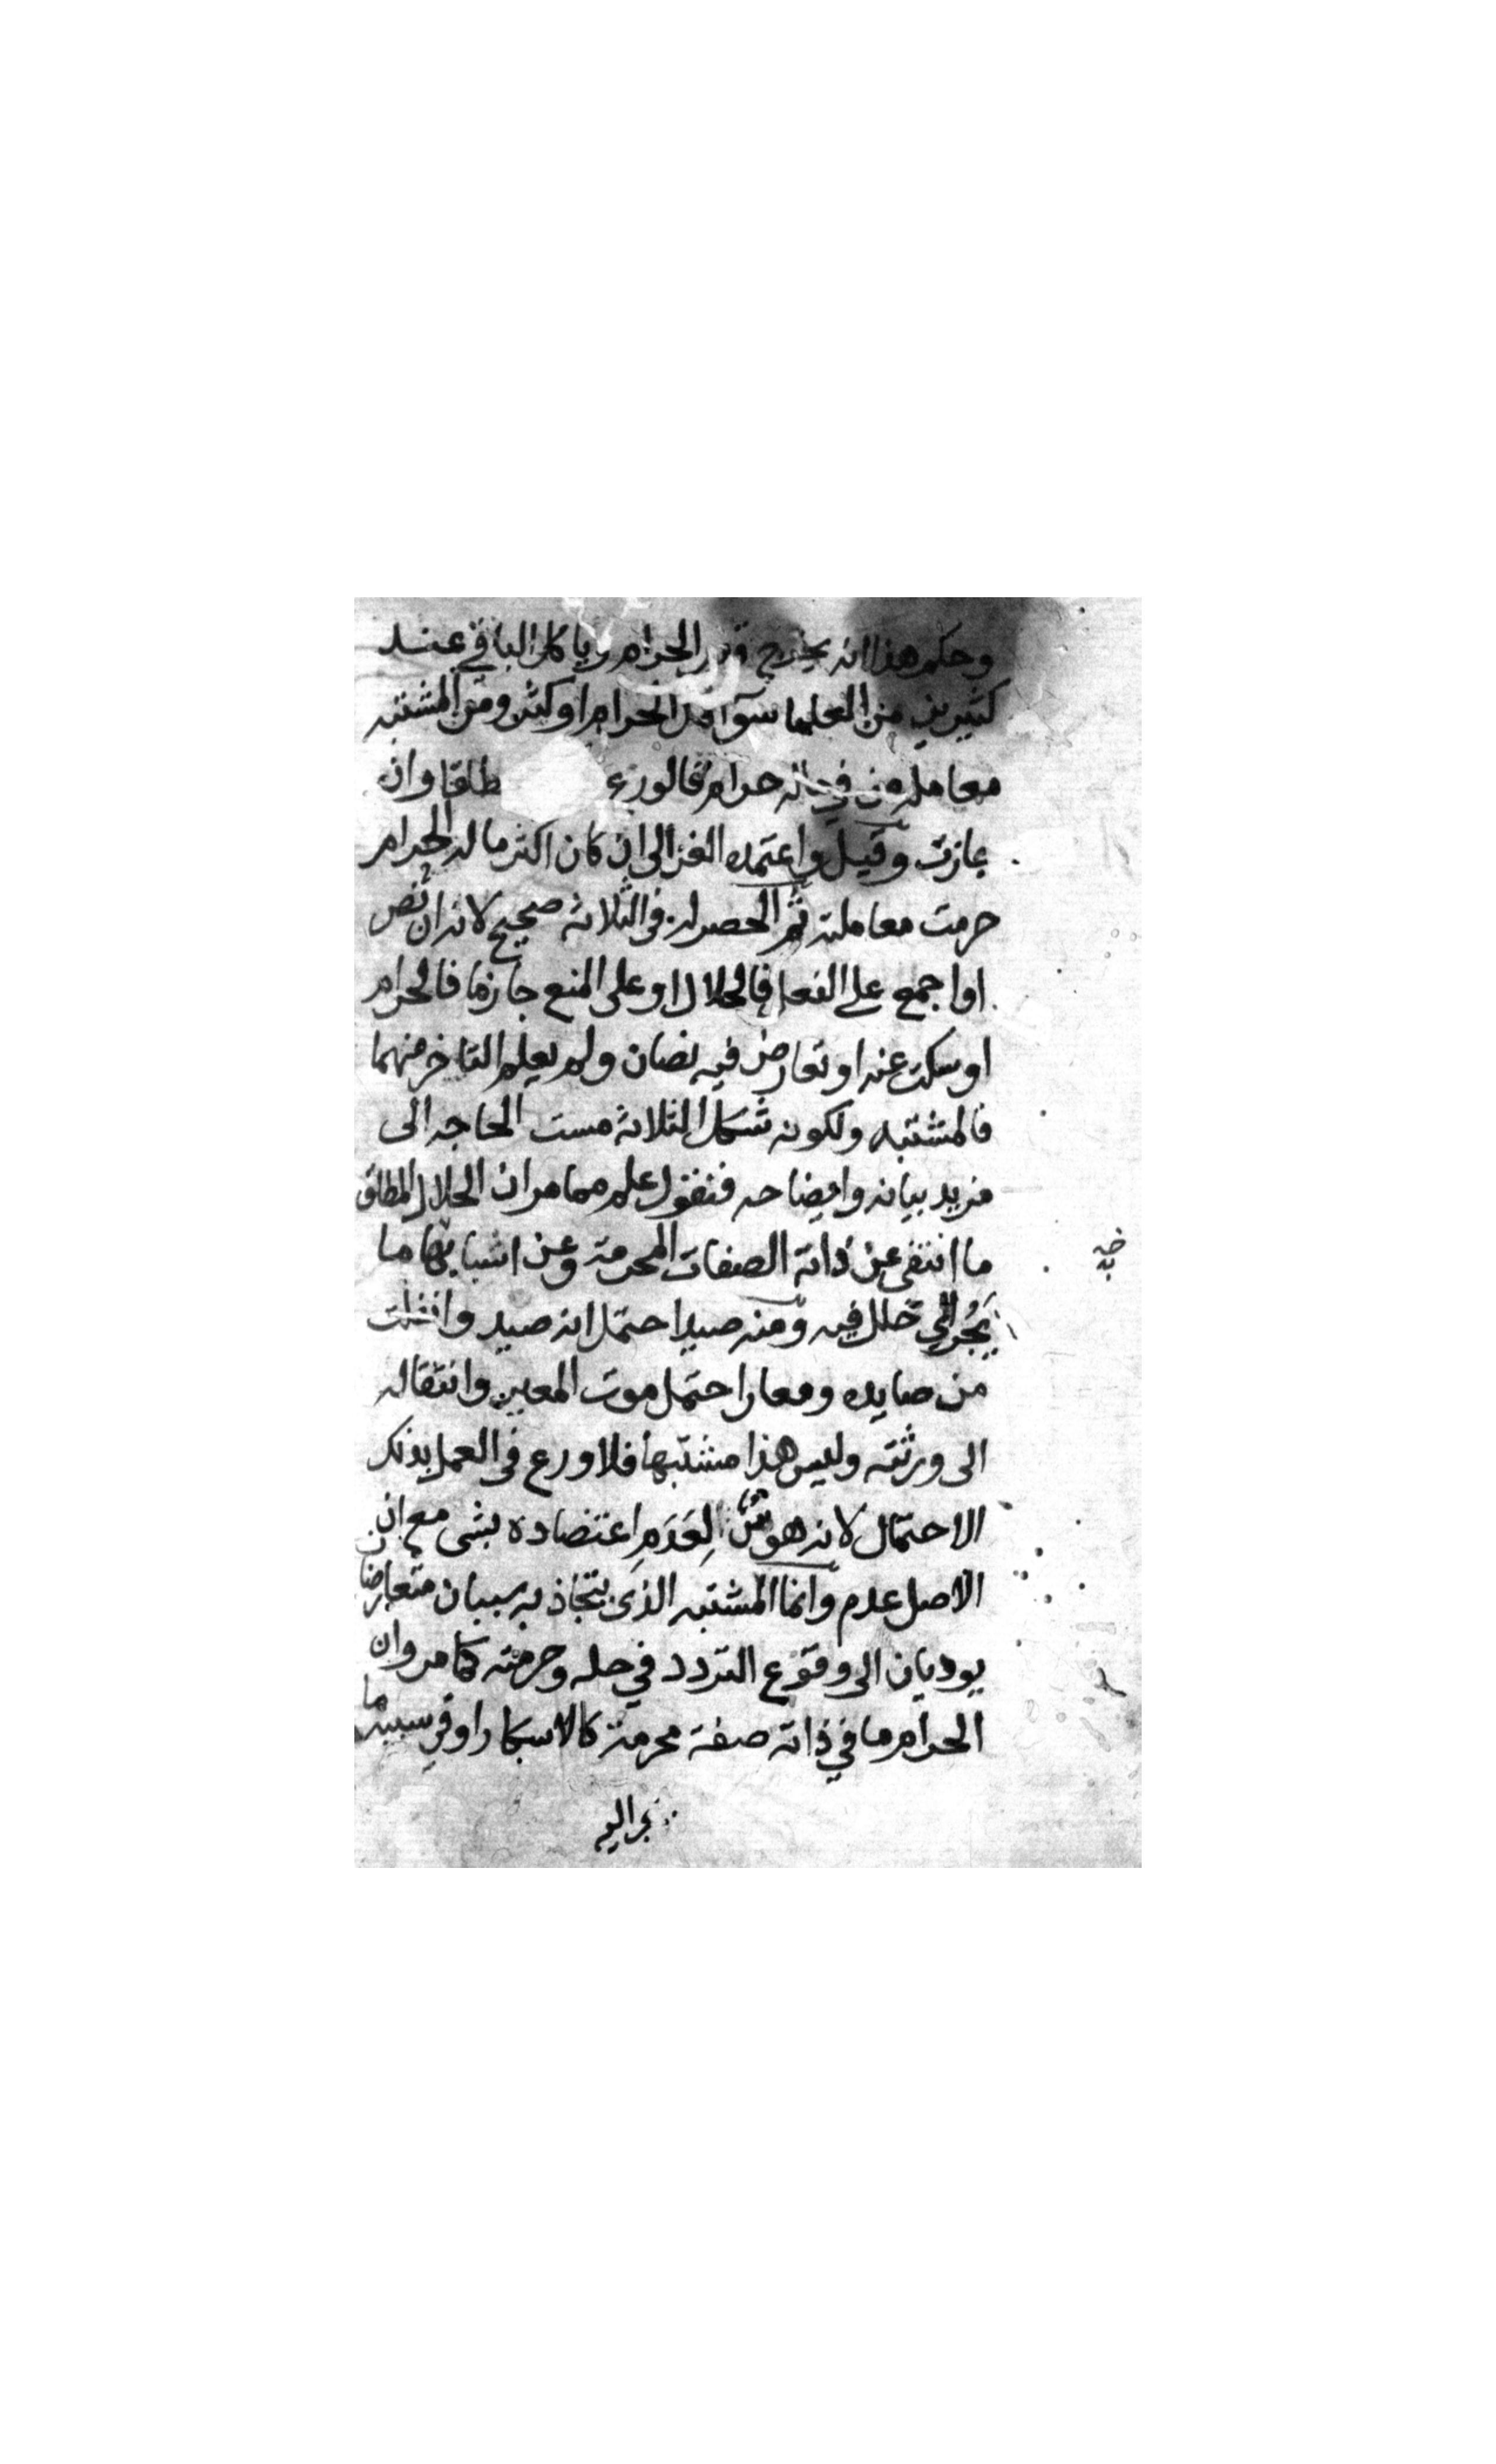 وحكم هذا انه يخرج قدر الحرام وياكل الباقي عند
كثيرين من العلما سوآ قل الحرام او كثر ومن المشتبه
معاملة من في ماله حرام فالورع طلقا وان
جازت وقيل واعتمده الغزالى ان كان اكثر ماله الحرام
حرمت معاملته ثم الحصر له فى الثلاثة صحيح لانه ان نص
او اجمع على الفعل فالحلال او على المنع جازما فالحرام
او سكت عنه او تعارض فيه نصان ولم يعلم المتاخر منهما
فالمشتبه ولكونه شكل الثلاثة مست الحاجه الى
مزيد بيانه وايضاحه فنقول علم مما مر ان الحلال المطلق
ما انتفى عن ذاته الصفات المحرمة وعن اسبابها ما
يَجُر الى خلل فيه ومنه صيد احتمل انه صيد وانفلت
من صايده ومعار احتمل موت المعير وانتقاله
الى ورثته وليس هذا مشتبها فلا ورع فى العمل بذلك
الاحتمال لانه هوس لِعَدَمِ اعتضاده بشى مع ان
الاصل عدم وانما المشتبه الذى يتجاذبه سببان متعارضان
يوديان الى وقوع التردد في حله وحرمته كما مر وان
الحرام ما في ذاته صفة محرمة كالاسكار او في سببه ما
يجر اليه